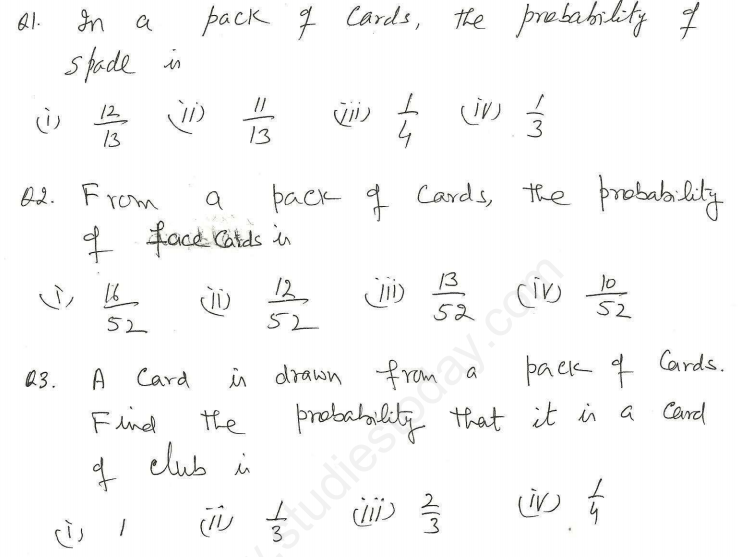 Q1. In a pack of Cards, the probability of
spade is
(i) 12/13 (ii) 11/13 (iii) 1/4 (iv) 1/3
Q2. From a pack of Cards, the probability
of face Cards is
(i) 16/52 (ii) 12/52 (iii) 13/52 (iv) 10/52
Q3. A Card is drawn from a pack of Cards.
Find the probability that it is a Card
of club is
(i) 1 (ii) 1/3 (iii) 2/3 (iv) 1/4
.studiestoday.com